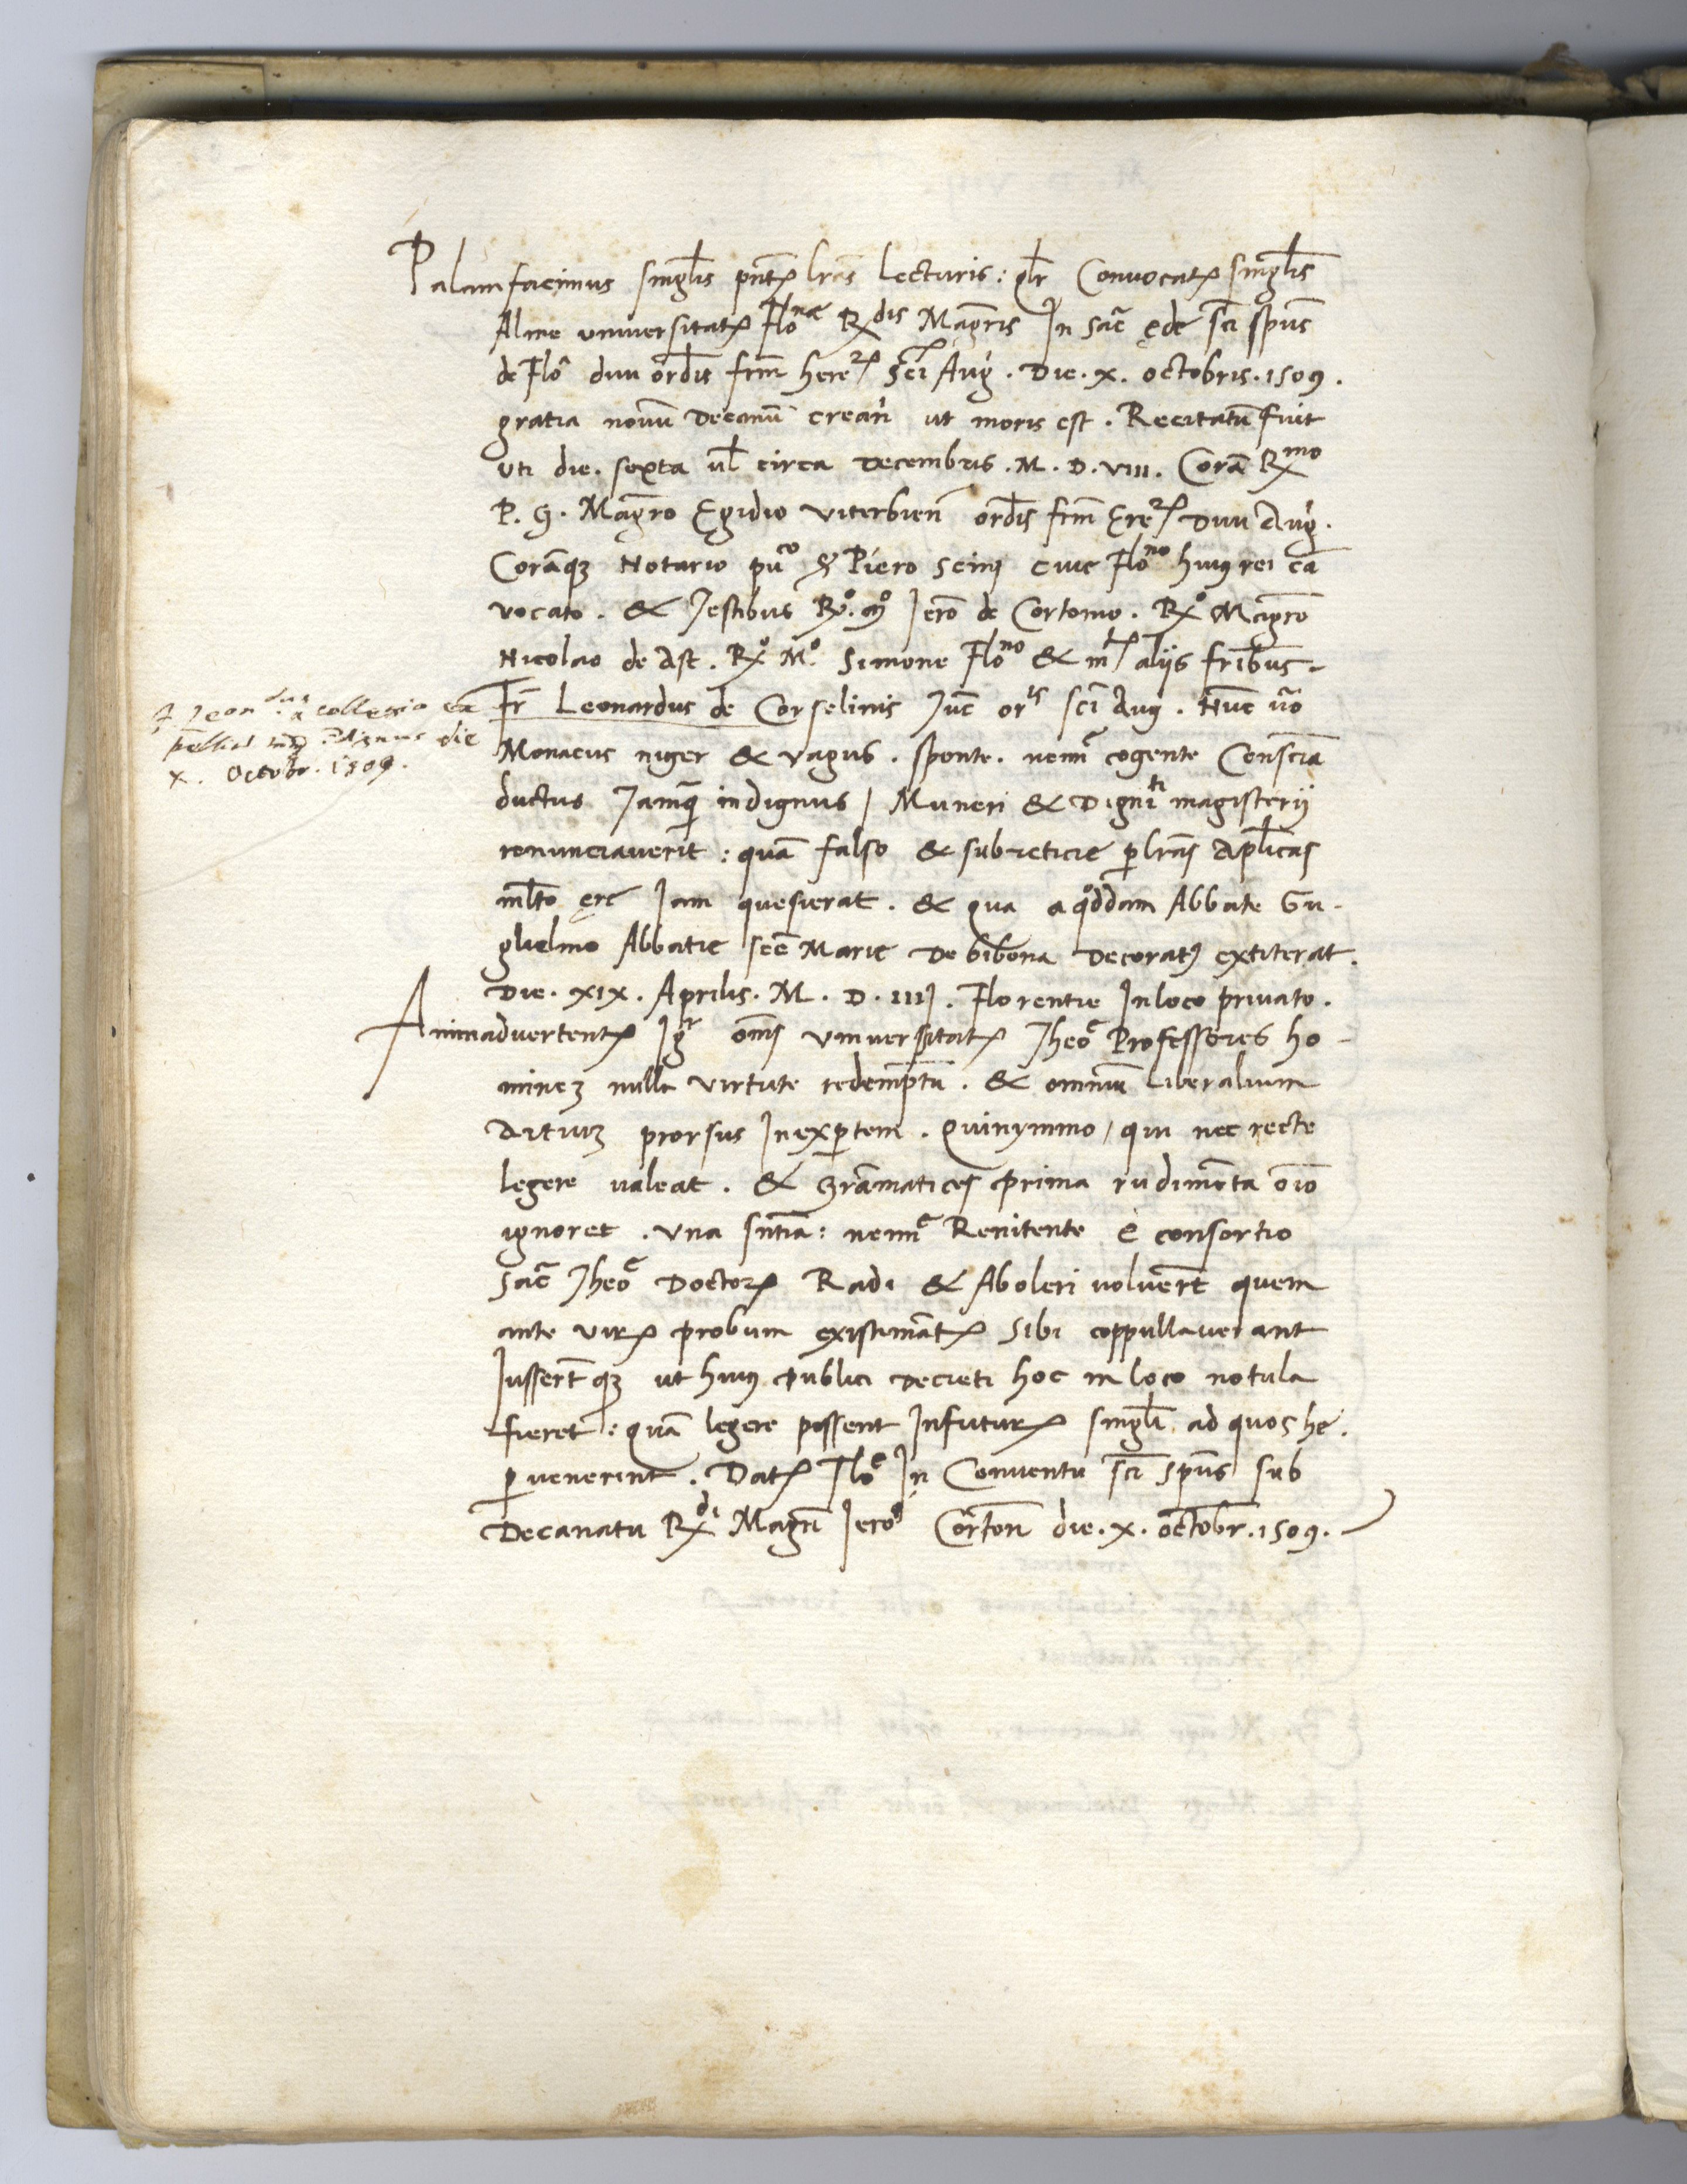 Palam facimus singlis pntꝝ lras Lecturis: qlr Convocatꝝ singlis
Alme universitatꝝ Flonae Rdis Magris In sac ęde sci spus
de Flo divi ordis frm hereꝝ Sci Aug. Die. x. octobris. 1509.
gratia novu Decanu creań ut moris est. Recitatu fuit
uti die. sexta ul circa Decembris. M. D. VIII. Cora Rmo
P. G. Magro Egidio Viterbien ordis frm Ereꝝ Divi Aug.
Coraqꝫ Notario puco & Piero scinj cive Flono huiꝰ rei ca
vocato. & Testibus Rdo. mo Jero de Cortonio. Rdo Magro
Nicolao de Ast. Rdo Mo. Simone Flono & mltꝝ aliis fribus
Fr Leonardus de Corselinis Tuc oris sci Aug. Nuc uo
Monacus niger & vagus. sponte. nemi cogente Conscia
ductus Jamqꝫ indignus / Muneri & Digniti magisterij
renunciaverit: qua falso & subreticie ꝑ lras Aplicas
mlto ęre Iam quesierat. & qua a quodda Abbate Gu-
glielmo Abbatie sce Marie De bibona Decoratꝰ extiterat.
Die. XIX. Aprilis. M. D. IIIJ. Florentie In loco privato.
Animadvertentꝝ Igr omis Universitatꝝ Theo Professores ho-
minez nulla virtute redemptu. & omniu Liberalium
Artiuz prorsus Inexꝑtem. Quinymmo / qui nec recte
legere valeat. & Gramatices prima rudimeta oio
ignoret. Una sntia: nemi Renitente e consortio
Sac Theo Doctorꝝ Radi & Aboleri voluert quem
ante virꝝ probum existimatꝝ sibi coppullaverant
Iussert qꝫ ut huiꝰ publici Decreti hoc in loco notula
fieret: qua legere possent In futurꝝ singli ad quos he.
ꝑvenerint. Datꝝ Floe In Conventu sci spus sub
Decanatu Rdi Magri Jero Corton die. x. octobr. 1509.
F Leondus a collegio ex
pellit indignus die
x. Octobr. 1509.